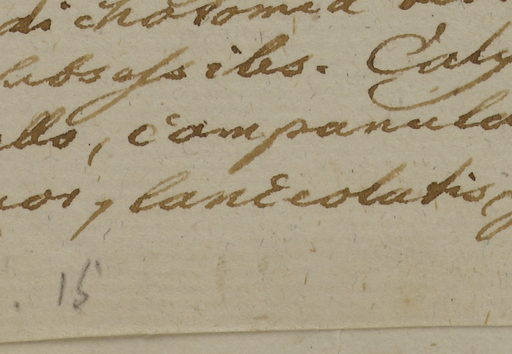 dichotomia
subsessiles. Caly
ello, campanula
uor, lanceolatis
. 15